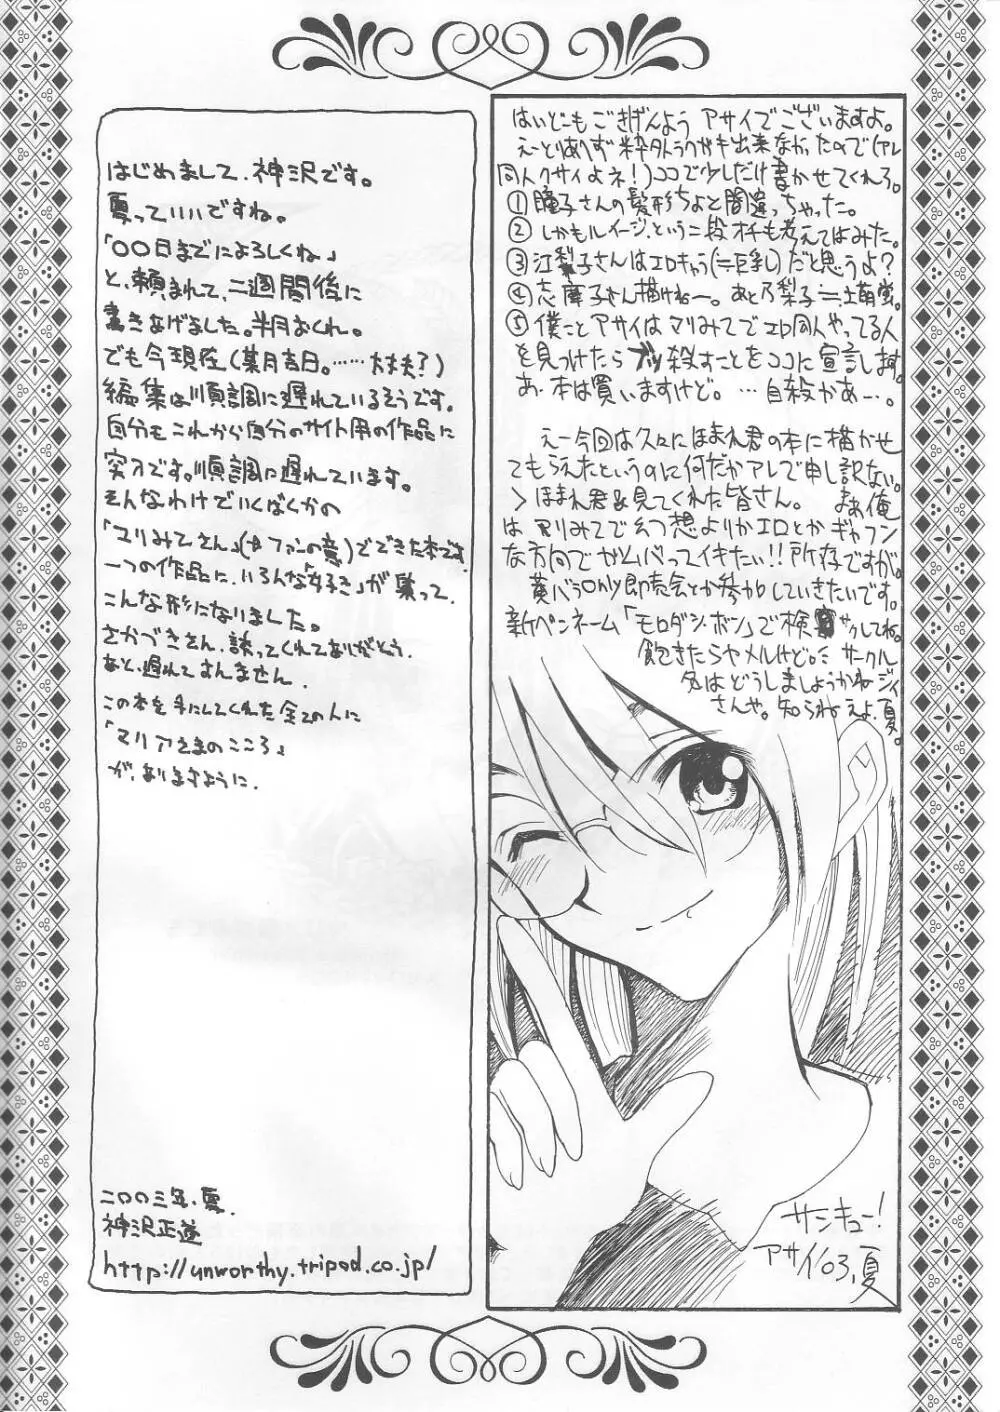 はいどーもごきげんよう アサイでございますよ。
えーとりあえず粋外トラクガキ出来なかったので(アレ
同人クサイよネ!)ココで少しだけ書かせてくれろ。
① 瞳子さんの髪形ちょと間違っちゃった。
② しかもルイージ、という二段オチも考えてはみた。
③ 江梨子さんはエロキャラ(=巨乳)だと思うよ?
④ 志摩子さん描けねー。あと乃梨子=土萌蛍。
⑤ 僕ことアサイはマリみてでエロ同人やってる人
を見つけたらブッ殺すことをココに宣言します。
あ、本は買いますけど。…自殺かあー。
えー今回は久々にほまれ君の本に描かせ
てもらえたというのに何だかアレで申し訳ない。
>ほまれ君&見てくれた皆さん。 まぁ俺
はマリみてで幻想よりかエロとかギャフン
な方向でガムバってイキたい!!所存ですが。
黄バラロサ即売会とか参加していきたいです。
新ペンネーム「モロダシ・ボン」で検サクしてね。
飽きたらヤメルけど。ミ サークル
名はどうしましょうかねジィ
さんや。知らねえよ、夏。
サンキュー!
アサイ'03.夏
はじめまして、神沢です。
夏っていいですね。
「〇〇日までによろしくね」
と、頼まれて、二週間後に
書きあげました。半月おくれ。
でも今現在(某月吉日。……大丈夫?)
編集は順調に遅れているそうです。
自分もこれから自分のサイト用の作品に
突入です。順調に遅れています。
そんなわけでいくばくかの
「マリみてさん」(⇦ファンの意)でできた本です。
一つの作品に、いろんな「好き」が集って、
こんな形になりました。
さかづきさん、誘ってくれてありがとう。
あと、遅れてすんません。
この本を手にしてくれた全ての人に
「マリアさまのこころ」
が、ありますように。
二〇〇三年、夏。
神沢正道
http://unworthy.tripod.co.jp/